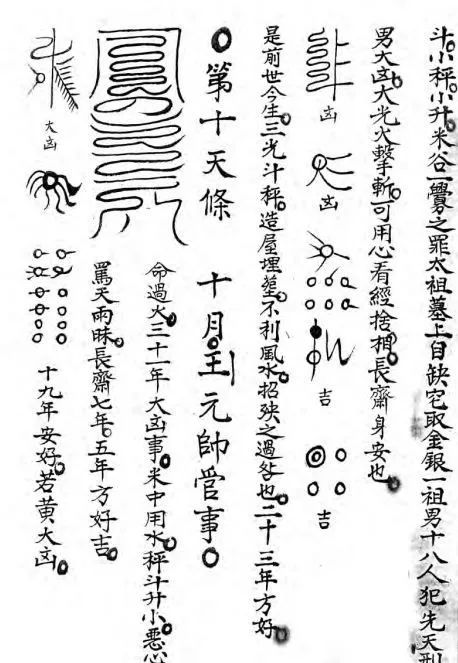 斗小秤小升米谷一釁之罪太祖墓上自缺它取金銀一祖男十八人犯先天刑
男大凶大光火擊斬可用心看經捨相長齋身安也
凶 凶 吉 吉
是前世今生三光斗秤造屋埋塟不利風水招殃之過咎也二十三年方好
第十天條 十月王元帥管事
命過火三十一年大凶事米中用水秤斗升小惡心
罵天雨昧長齋七年五年方好吉
大凶 十九年安好若黃大凶